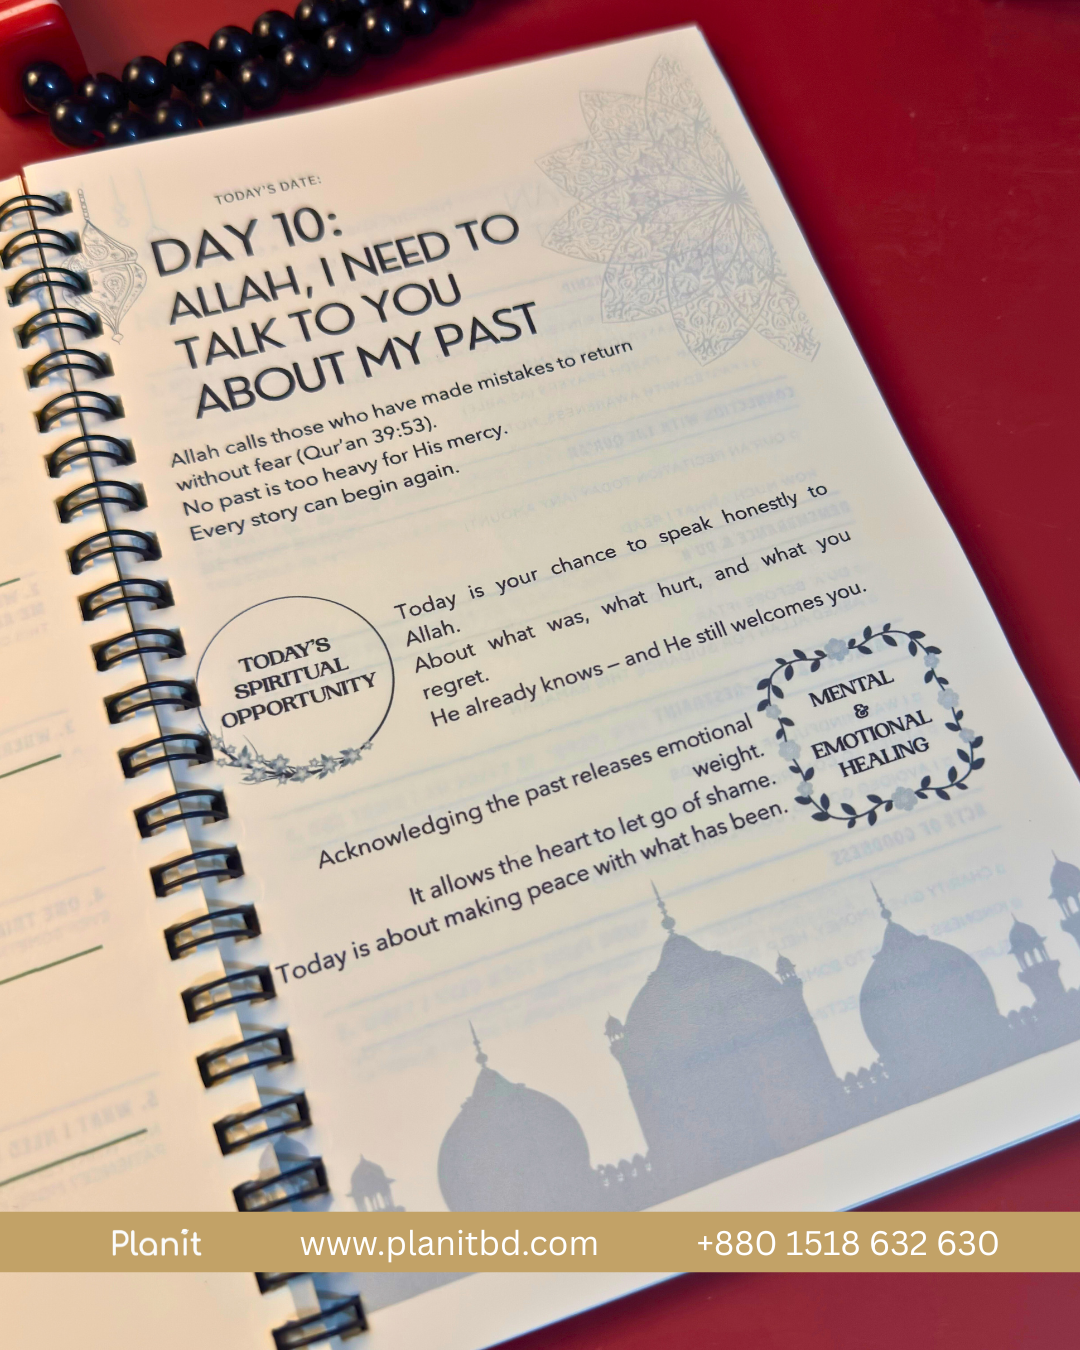 TODAY'S DATE:
DAY 10:
ALLAH, I NEED TO
TALK TO YOU
ABOUT MY PAST
Allah calls those who have made mistakes to return
without fear (Qur'an 39:53).
No past is too heavy for His mercy.
Every story can begin again.
TODAY'S
SPIRITUAL
OPPORTUNITY
Today is your chance to speak honestly to
Allah.
About what was, what hurt, and what you
regret.
He already knows – and He still welcomes you.
MENTAL
&
EMOTIONAL
HEALING
Acknowledging the past releases emotional
weight.
It allows the heart to let go of shame.
Today is about making peace with what has been.
Planit
www.planitbd.com
+880 1518 632 630